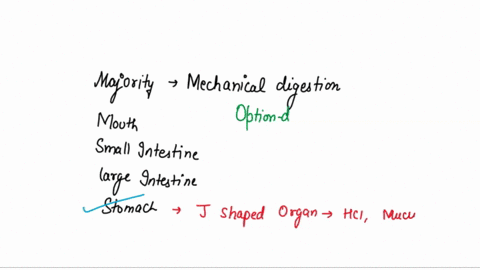 Majority → Mechanical digestion
Option-d
Mouth
Small Intestine
large Intestine
Stomach → J Shaped Organ → HCl, Mucu